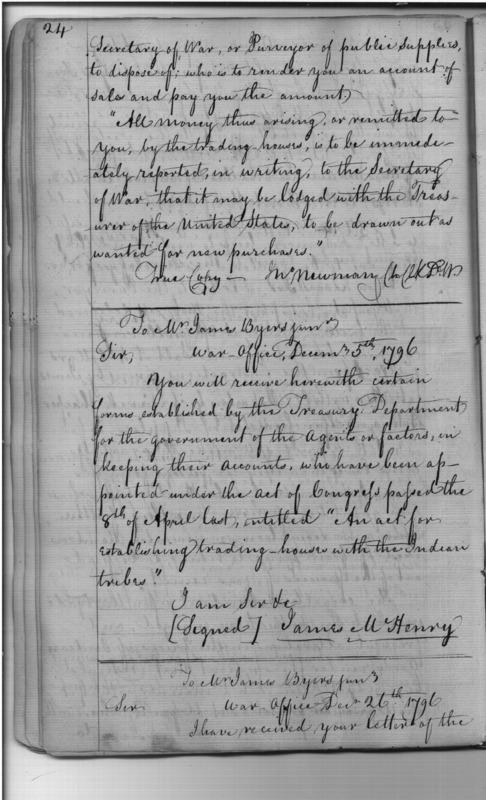 24
Secretary of War, or Purveyor of public Supplies,
to dispose of; who is to render you an account of
sales and pay you the amount.
"All money thus arising, or remitted to
you, by the trading-houses, is to be immede-
ately reported, in writing, to the Secretary
of War, that it may be lodged with the Treas-
urer of the United States, to be drawn out as
wanted for new purchases."
True Copy — Wm Newman,
To Mr. James Byers junr
Sir, War-Office, Decemr 5th, 1796
You will receive herewith certain
forms established by the Treasury Department
for the government of the agents or factors, in
keeping their accounts, who have been ap-
pointed under the act of Congress passed the
8th of April last, intitled "An act for
establishing trading-houses with the Indian
tribes."
I am Sir &c
[Signed] James McHenry
To Mr James Byers junr
Sir War-Office Decr 26th 1796
I have received your letter of the